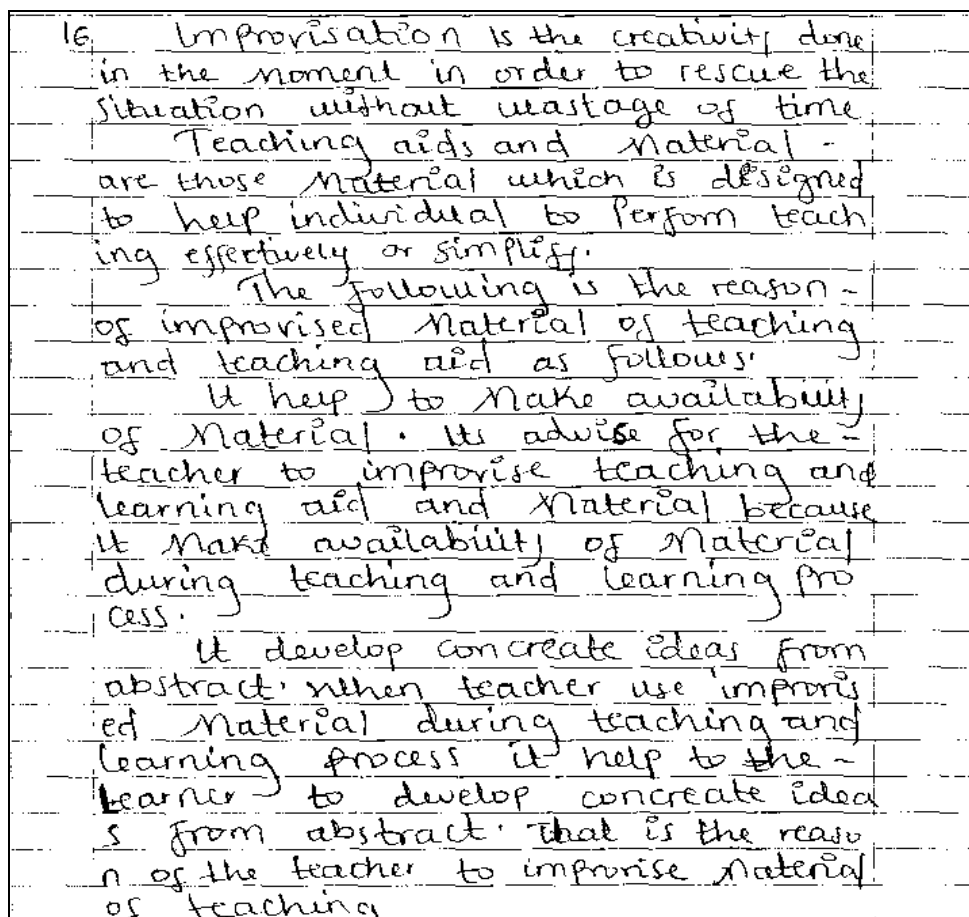 16. Improvisation is the creativity done
in the moment in order to rescue the
situation without wastage of time
Teaching aids and Material -
are those Material which is designed
to help individual to Perfom teach
ing effectively or simplify.
The following is the reason -
of improvised Material of teaching
and teaching aid as follows.
It help to Make availability
of Material. Its advise for the -
teacher to improvise teaching and
learning aid and Material because
it Make availability of Material
during teaching and learning Pro
cess.
It develop concreate ideas from
abstract. When teacher use improvis
ed Material during teaching and
learning process it help to the -
learner to develop concreate idea
s from abstract. That is the reaso
n of the teacher to improvise Material
of teaching